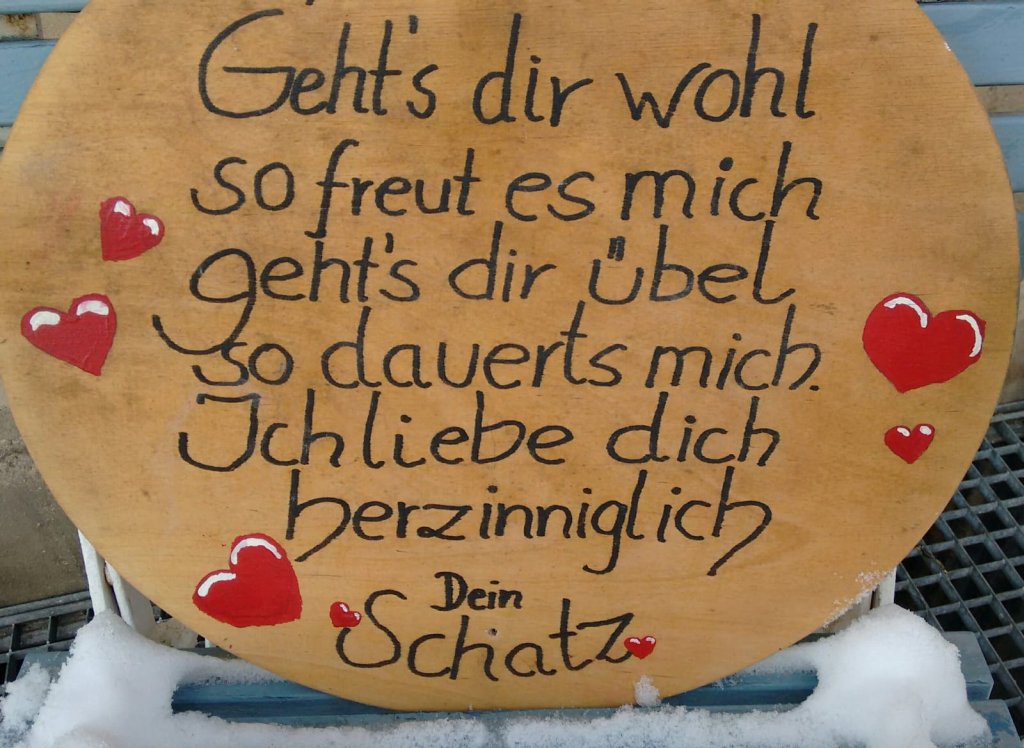 Geht's dir wohl
so freut es mich
geht's dir übel
so dauerts mich.
Ich liebe dich
herzinniglich
Dein
Schatz